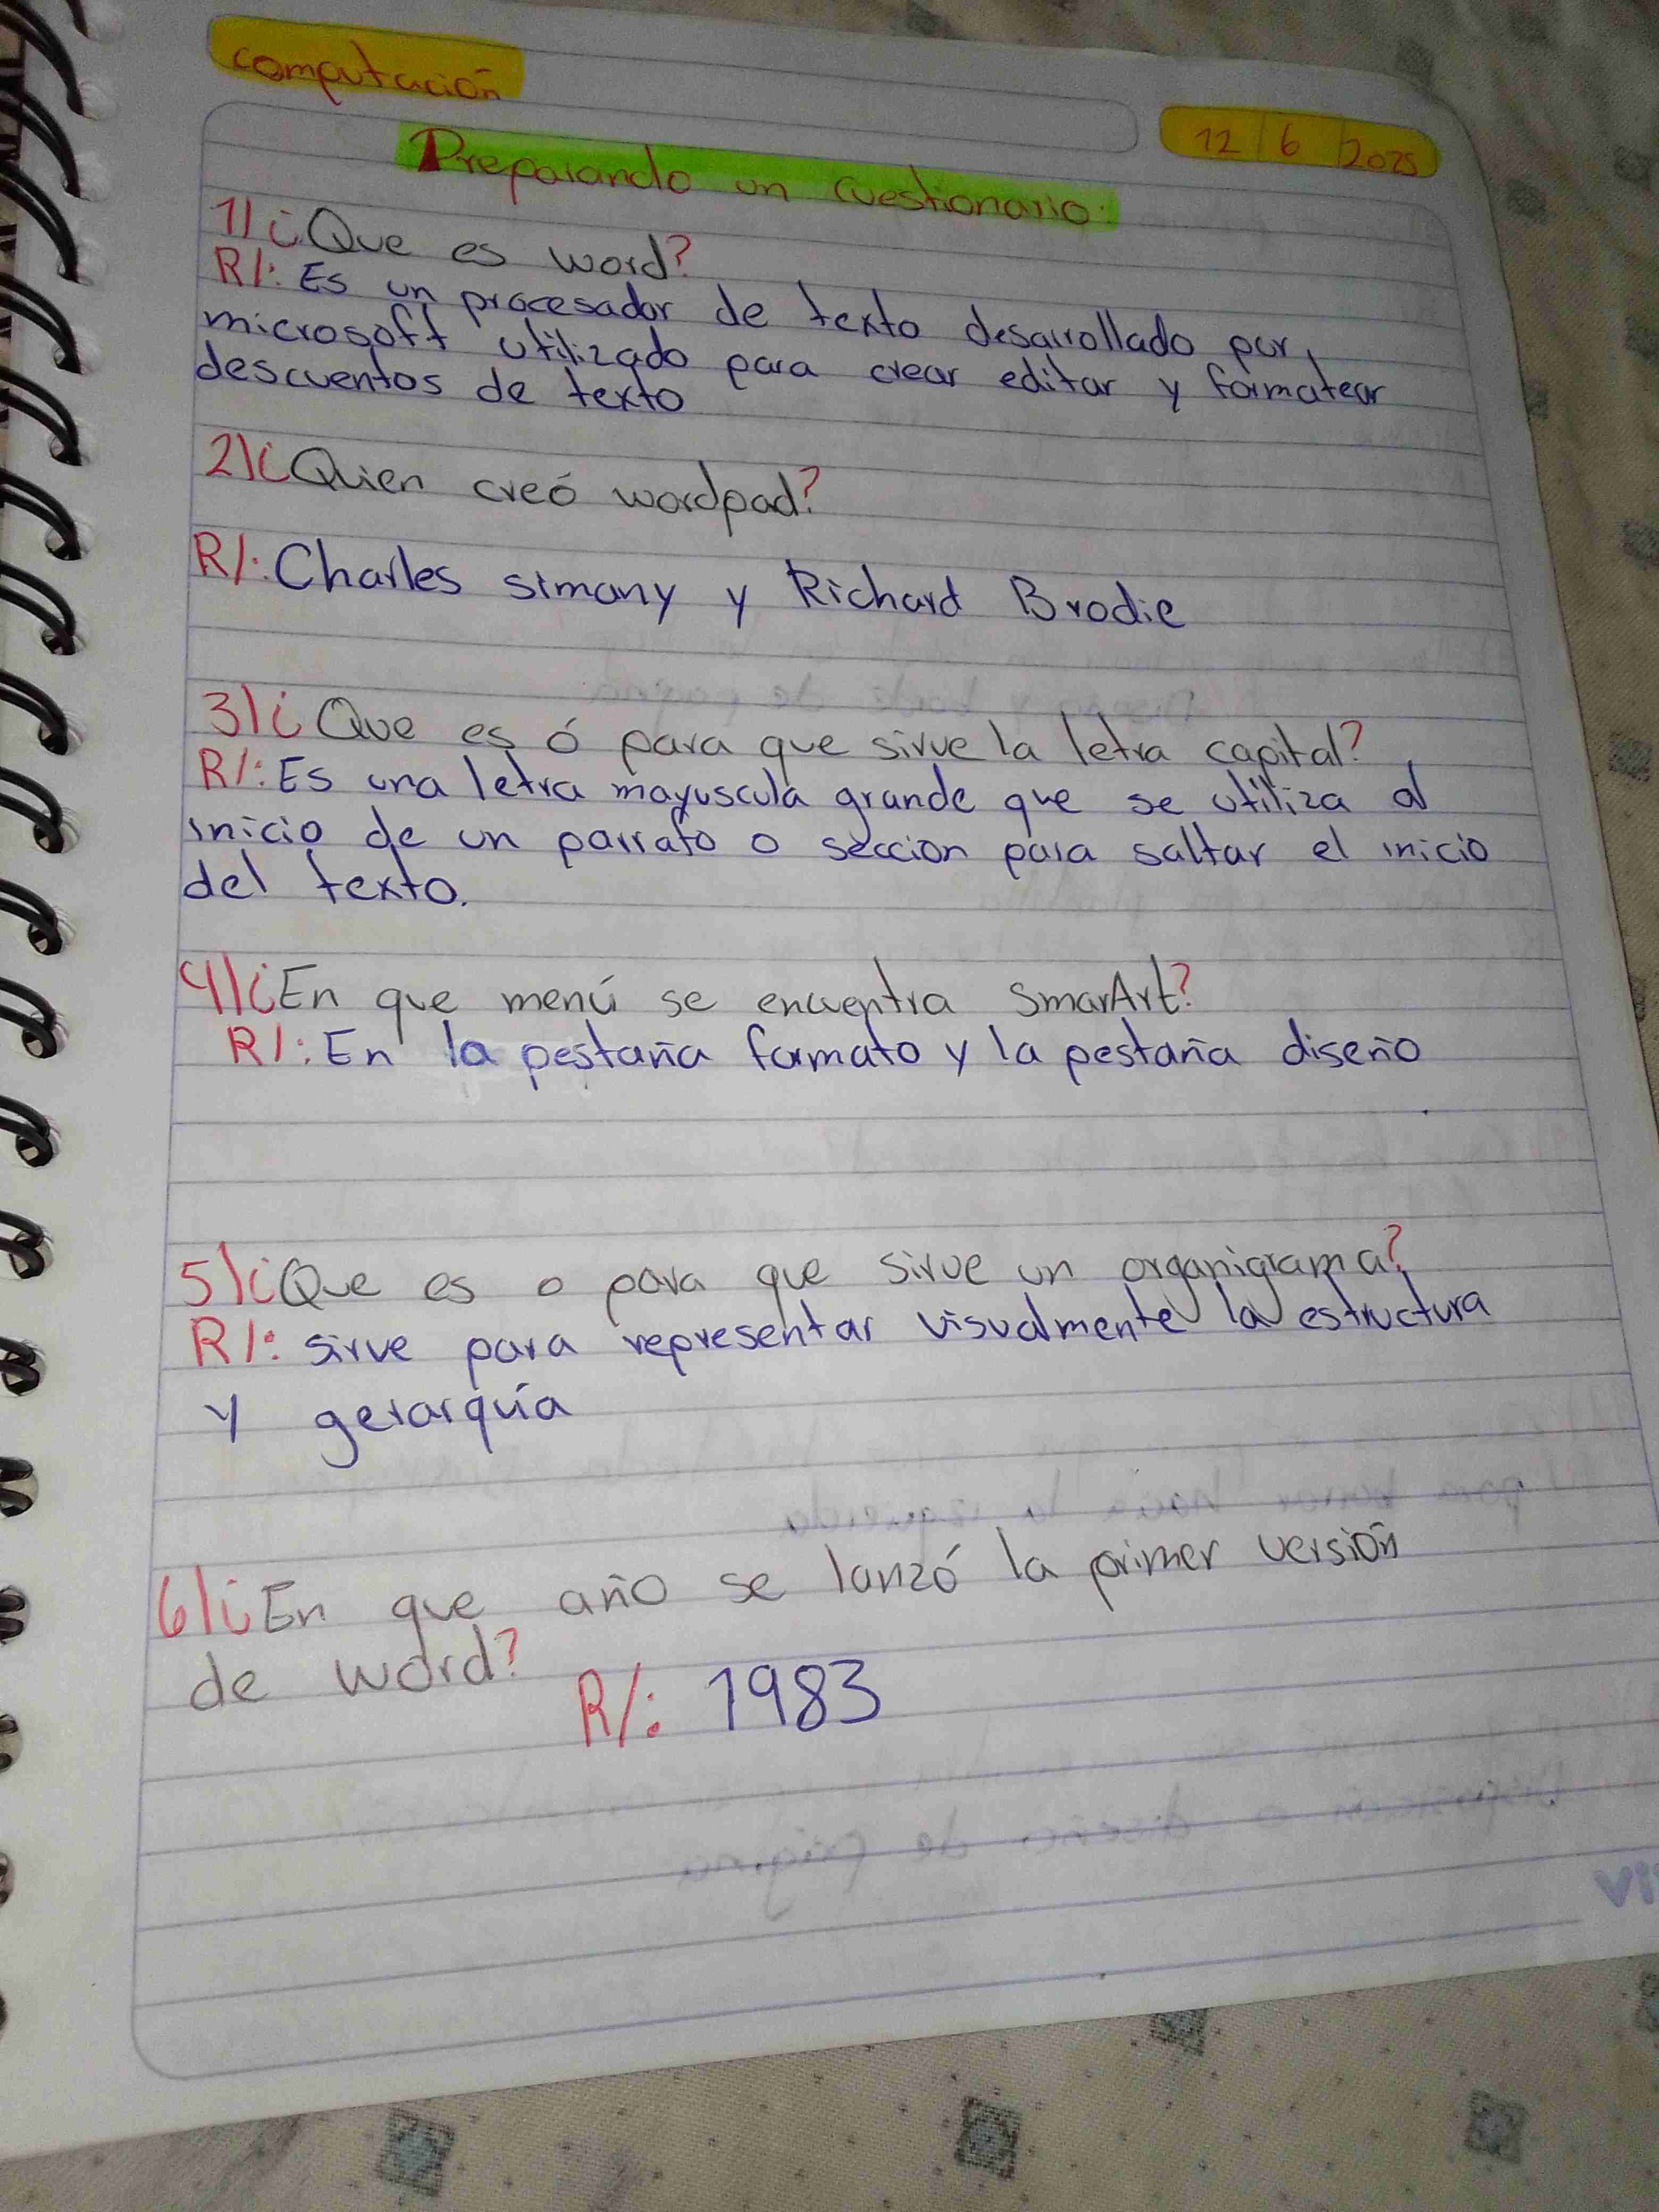 computación
12 6 2025
Preparando un cuestionario:
1) ¿Que es word?
R/: Es un procesador de texto desarrollado por,
microsoft utilizado para crear editar y formatear
descuentos de texto
2) ¿Quien creó wordpad?
R/: Charles simany y Richard Brodie
3) ¿Que es ó para que sirve la letra capital?
R/: Es una letra mayuscula grande que se utiliza al
inicio de un parrafo o seccion para saltar el inicio
del texto.
4) ¿En que menú se encuentra SmarArt?
R/: En la pestaña formato y la pestaña diseño
5) ¿Que es o para que sirve un organigrama?
R/: sirve para representar visualmente la estructura
y gerarquía
6) ¿En que año se lanzó la primer versión
de word?
R/: 1983